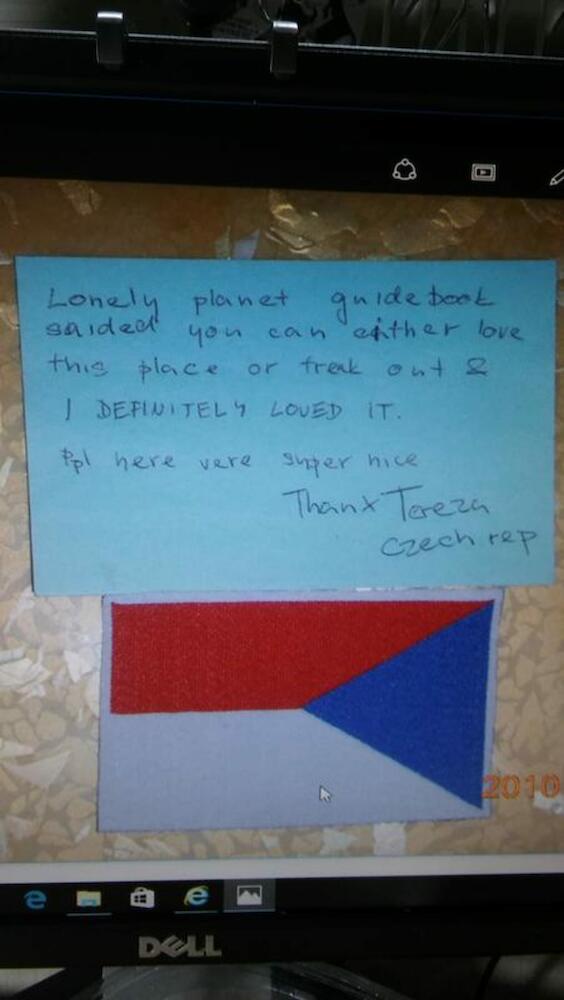 Lonely planet guidebook
saided you can either love
this place or freak out &
I DEFINITELY LOVED IT.
Ppl here vere super nice
Thanx Tereza
Czech rep
2010
DELL